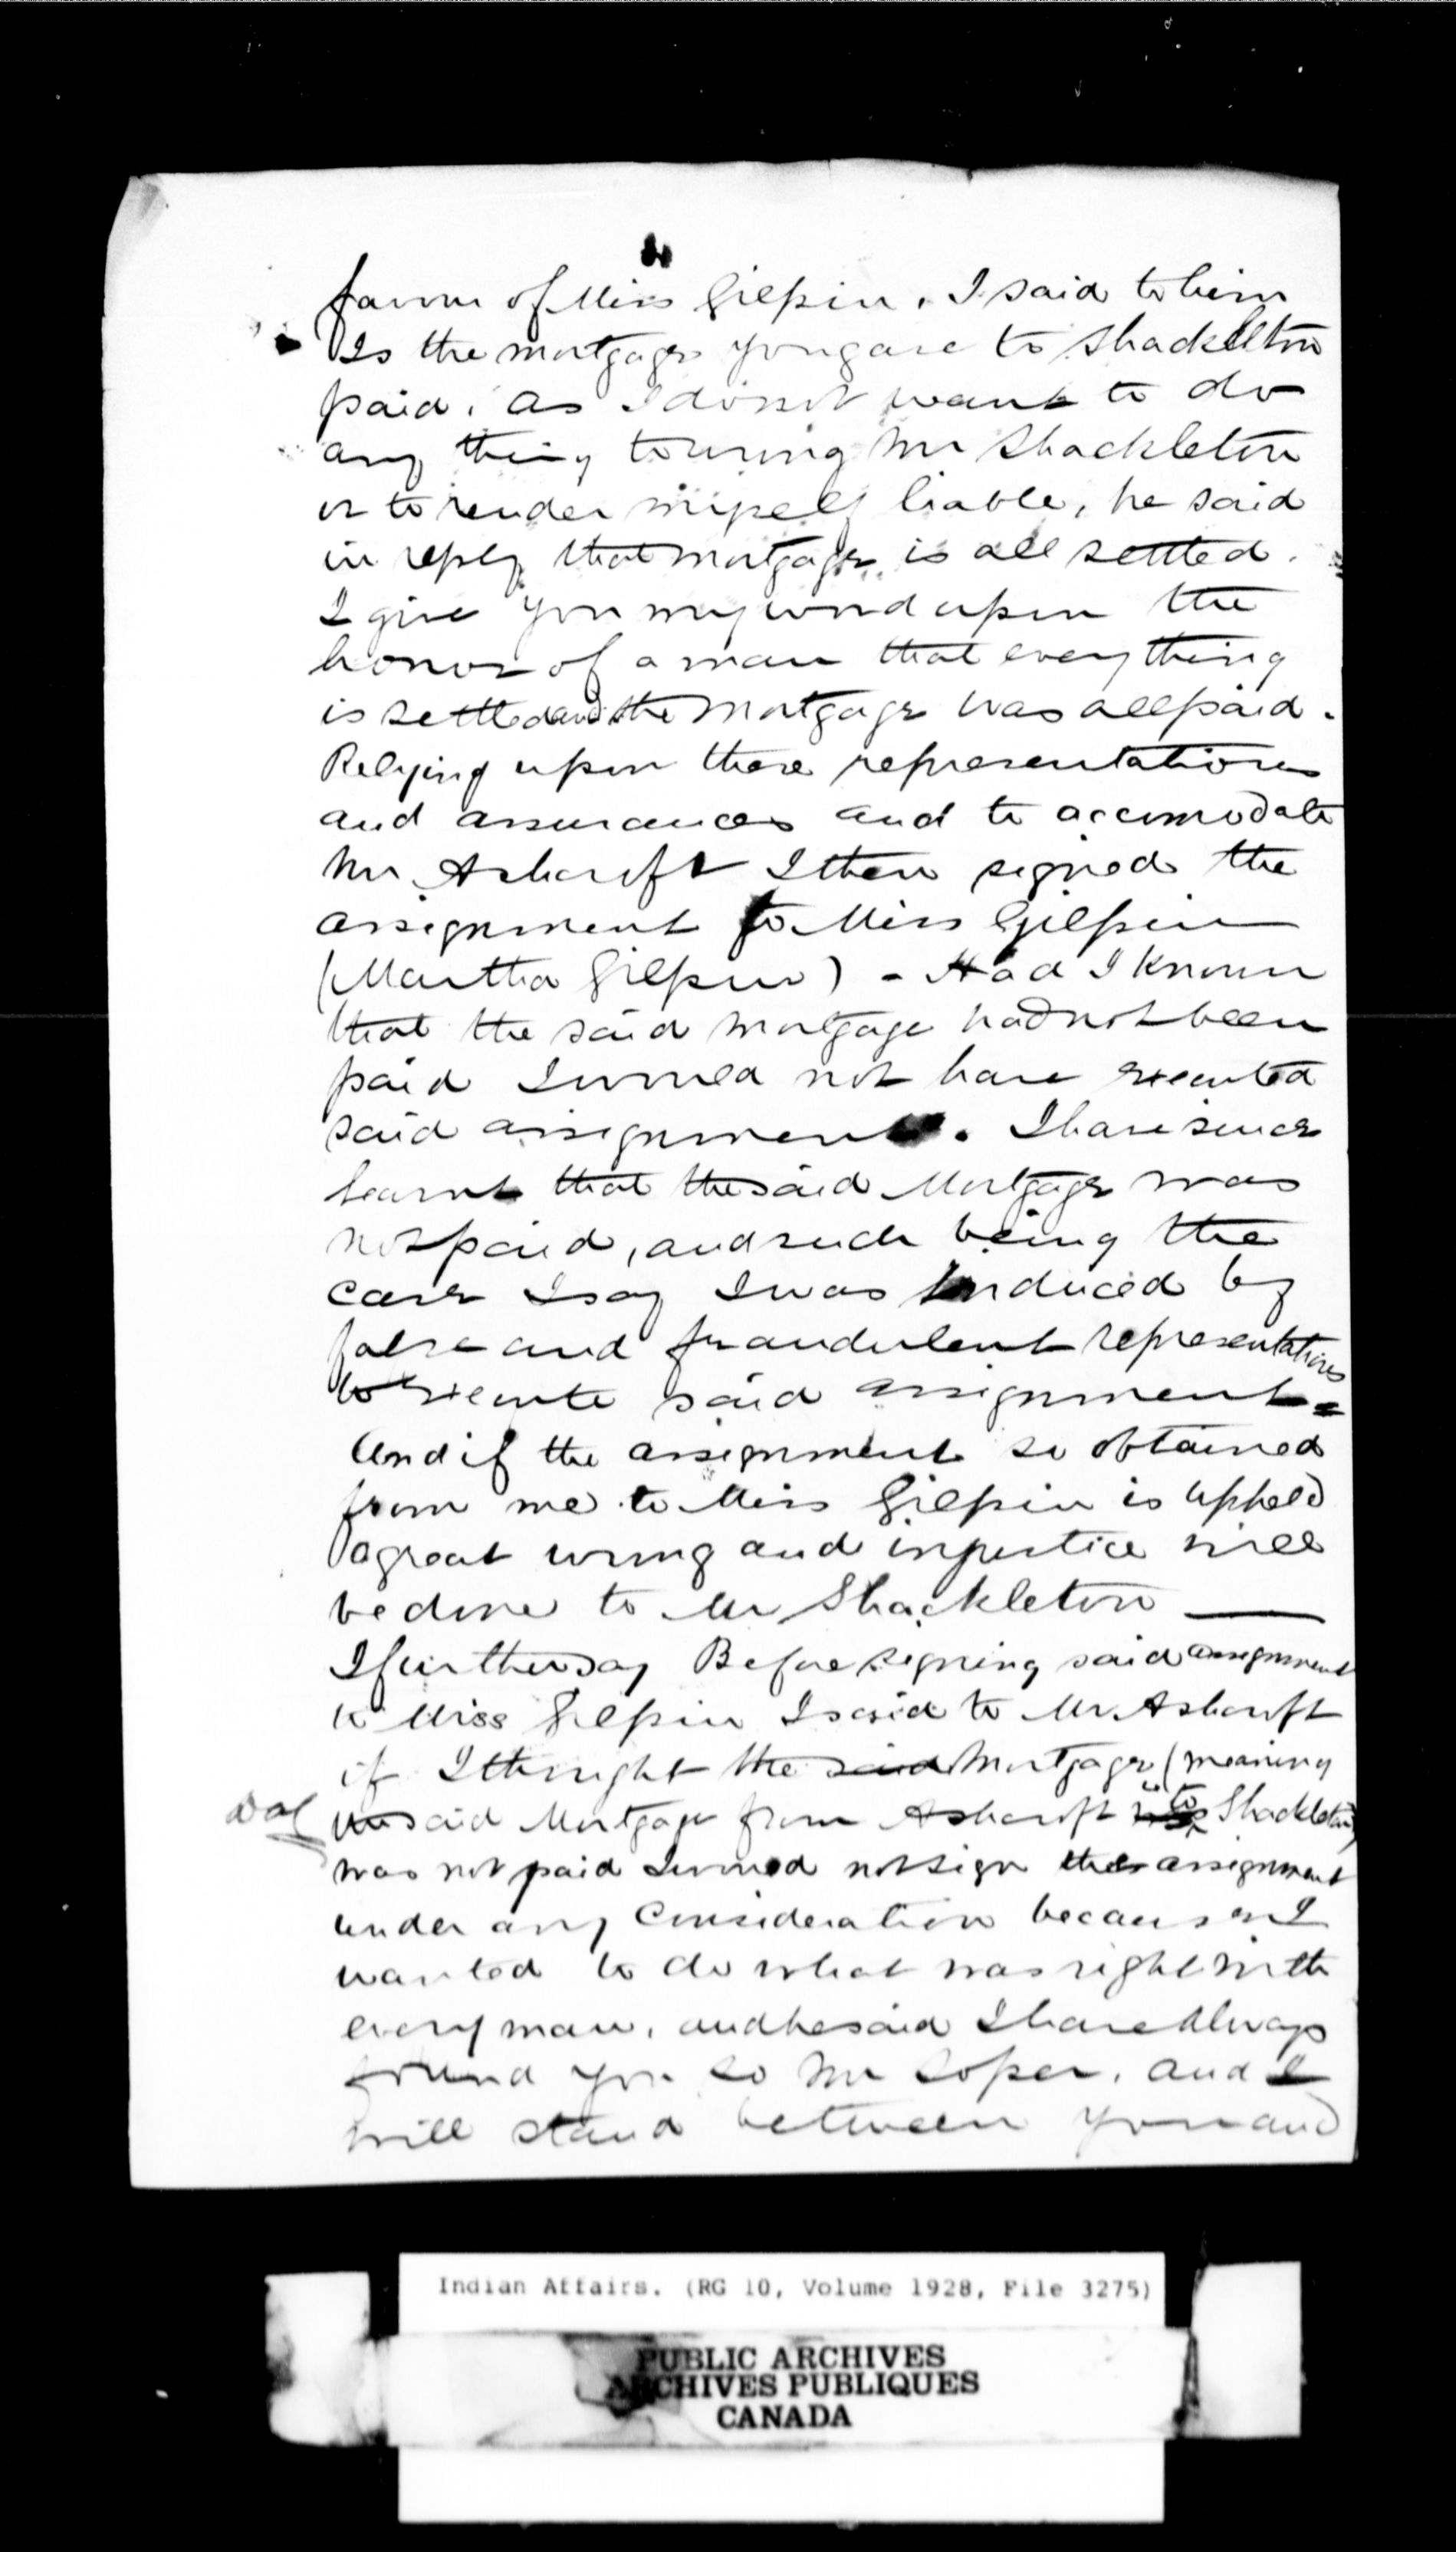 favour of Miss Gilpin. I said to him
Is the mortgage you gave to Shackelton
paid, as I do not want to do
any thing to wrong Mr Shackleton
or to render myself liable, he said
in reply that mortgage is all settled.
I give you my word upon the
honor of a man that everything
is settled and the Mortgage was all paid.
Relying upon these representations
and assurances and to accomodate
Mr Ashcroft I then signed the
assignment to Miss Gilpin
(Martha Gilpin) - Had I known
that the said Mortgage had not been
paid I would not have executed
said assignment. I have since
learnt that the said Mortgage was
not paid, and such being the
case I say I was induced by
false and fraudulent representations
to execute said assignment =
And if the assignment so obtained
from me to Miss Gilpin is upheld
a great wrong and injustice will
be done to Mr Shackleton
I further say Before signing said assignment
to Miss Gilpin I said to Mr Ashcroft
if I thought the said Mortgage (meaning
the said Mortgage from Ashcroft to Shackleton)
was not paid I would not sign the assignment
under any consideration because I
wanted to do what was right with
every man, and he said I have always
found you so Mr Soper, and I
will stand between you and
Indian Affairs. (RG 10, Volume 1928, File 3275)
PUBLIC ARCHIVES
ARCHIVES PUBLIQUES
CANADA